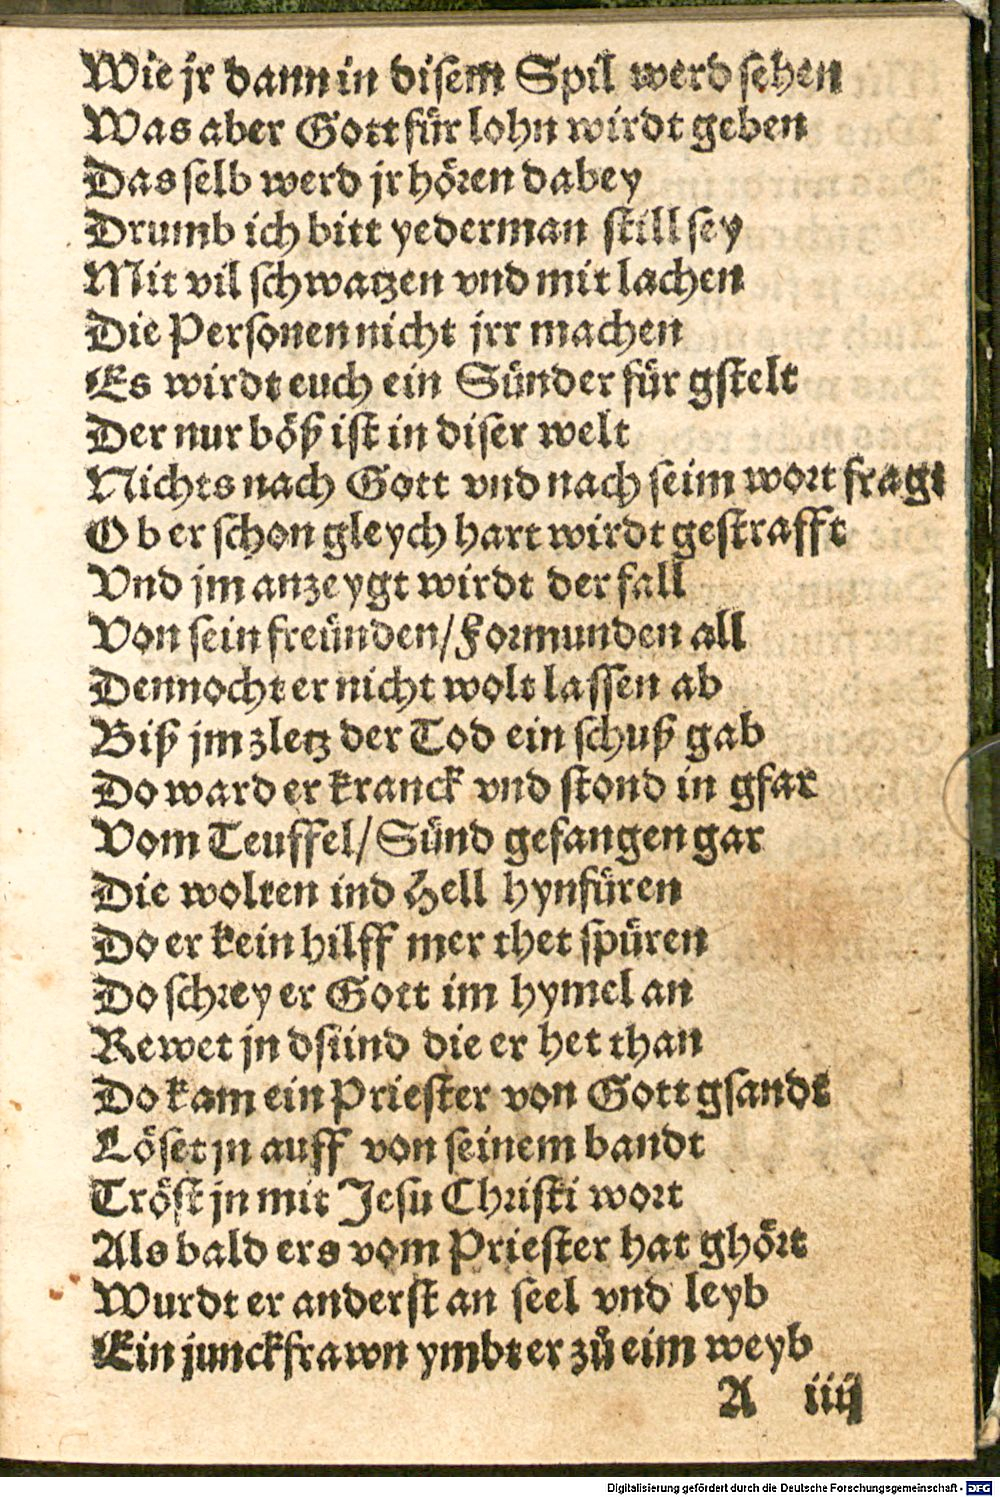 Wie jr dann in disem Spil werd sehen
Was aber Gott für lohn wirdt geben
Das selb werd jr hören dabey
Drumb ich bitt yederman still sey
Mit vil schwatzen vnd mit lachen
Die Personen nicht jrr machen
Es wirdt euch ein Sünder für gstelt
Der nur böß ist in diser welt
Nichts nach Gott vnd nach seim wort fragt
Ob er schon gleych hart wirdt gestrafft
Vnd jm anzeygt wirdt der fall
Von sein freünden/Formunden all
Dennocht er nicht wolt lassen ab
Biß jm zletz der Tod ein schuß gab
Do ward er kranck vnd stond in gfar
Vom Teuffel/Sünd gefangen gar
Die wolten ind Hell hynfüren
Do er kein hilff mer thet spüren
Do schrey er Gott im hymel an
Rewet jn dsünd die er het than
Do kam ein Priester von Gott gsandt
Löset jn auff von seinem bandt
Tröst jn mit Jesu Christi wort
Als bald ers vom Priester hat ghört
Wurdt er anderst an seel vnd leyb
Ein junckfrawn ymbt er zů eim weyb
A iiij
Digitalisierung gefördert durch die Deutsche Forschungsgemeinschaft - DFG